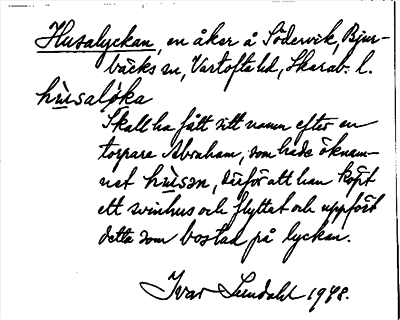 Husalyckan, en åker å Södervik, Bjur-
bäcks sn, Vartofta hd, Skarab. l.
hùsaløka
Skall ha fått sitt namn efter en
torpare Abraham, som hade öknam-
net hùsən, därför att han köpt
ett svinhus och flyttat och uppfört
detta som bostad på lyckan.
Ivar Lundahl 1948.